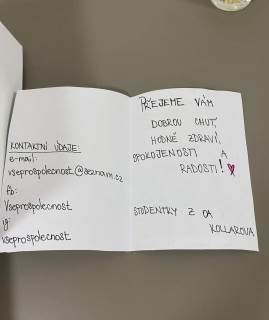 KONTAKTNÍ ÚDAJE:
e-mail:
vseprospolecnost@seznam.cz
fb:
Vseprospolecnost
ig:
vseprospolecnost
PŘEJEME VÁM
DOBROU CHUŤ,
HODNĚ ZDRAVÍ,
SPOKOJENOSTI A
RADOSTI!
STUDENTKY Z OA
KOLLÁROVA